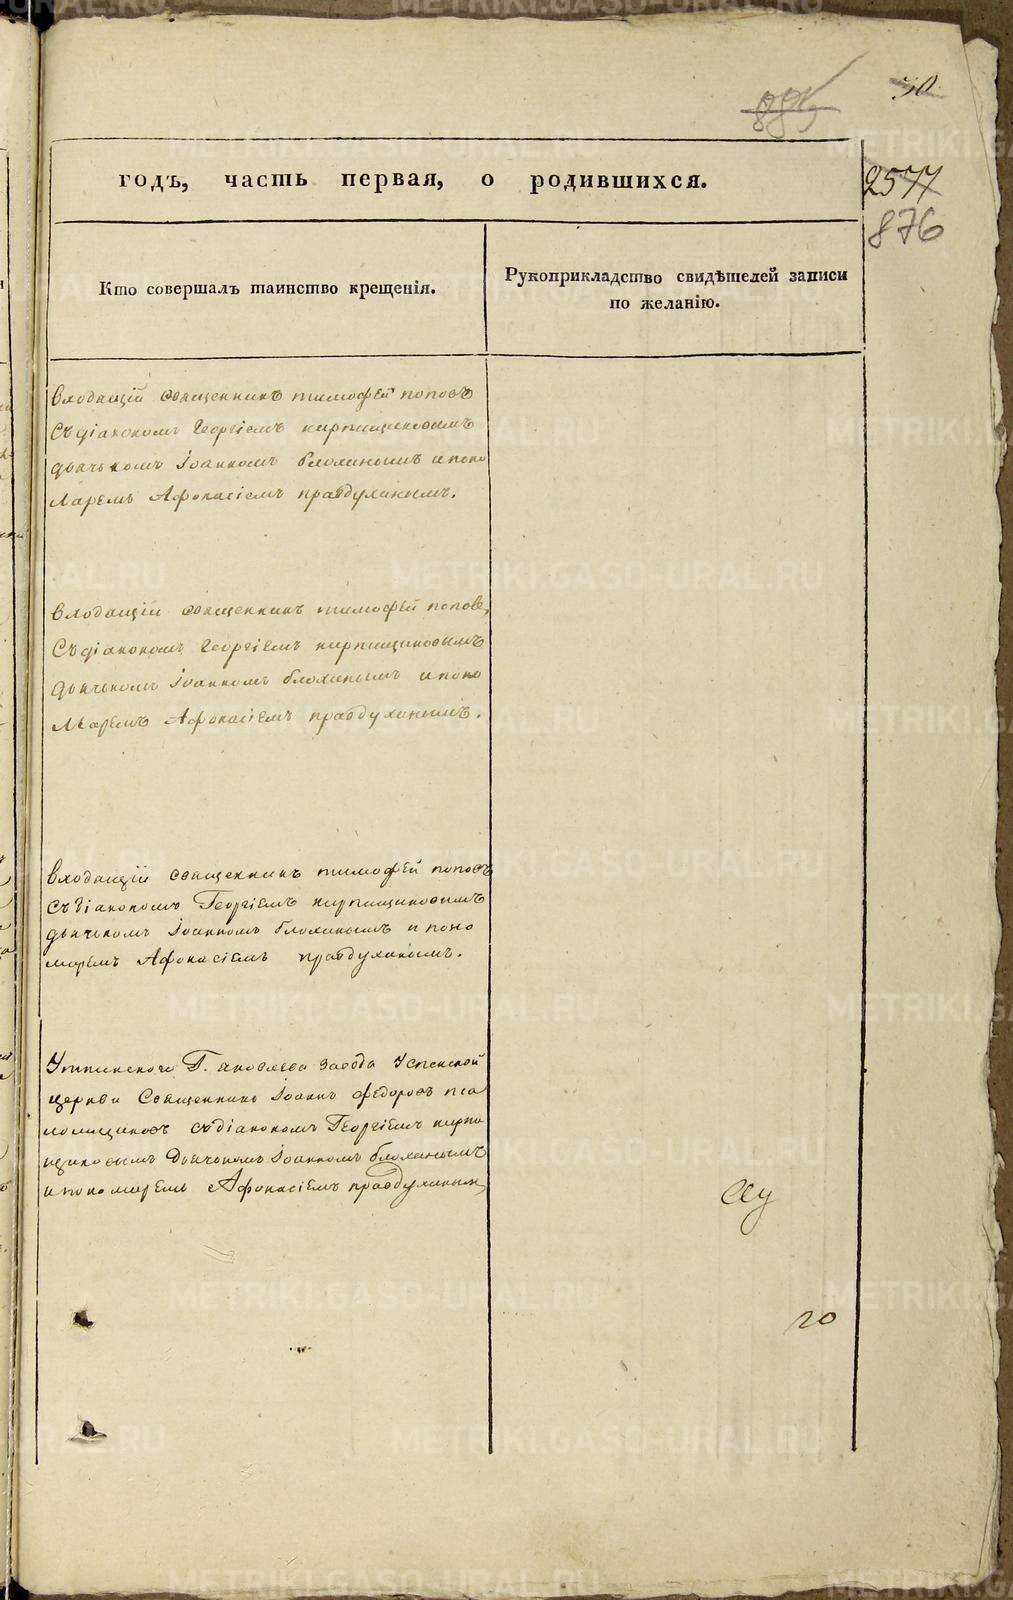 30
885
годъ, часть первая, о родившихся.
2577
876
Кто совершалъ таинство крещенія.
Рукоприкладство свидѣтелей записи
по желанію.
входащій священникъ тимофей поповъ
Съ діакономъ Георгіемъ кирпищиковымъ
дьячькомъ Іоанномъ блохинымъ и поно
Маремъ Афонасіемъ правдухинымъ.
входащій священникъ тимофей поповъ,
Съ діакономъ Георгіемъ кирпищиковымъ
дьячькомъ Іоанномъ блохинымъ и поно
Маремъ Афонасіемъ правдухинымъ.
входащій священникъ тимофей поповъ
Съ діакономъ Георгіемъ кирпищиковымъ
дьячькомъ Іоанномъ блохинымъ и поно
маремъ Афонасіемъ правдухинымъ.
Уткинского Г. яковлева завода Успенской
церкви Священникъ Іоаннъ федоровъ пса
ломщиковъ съ діакономъ Георгіемъ кирпи
щиковымъ Дьячькомъ Іоанномъ блохинымъ
и пономаремъ Афонасіемъ правдухинымъ
METRIKI.GASO-URAL.RU